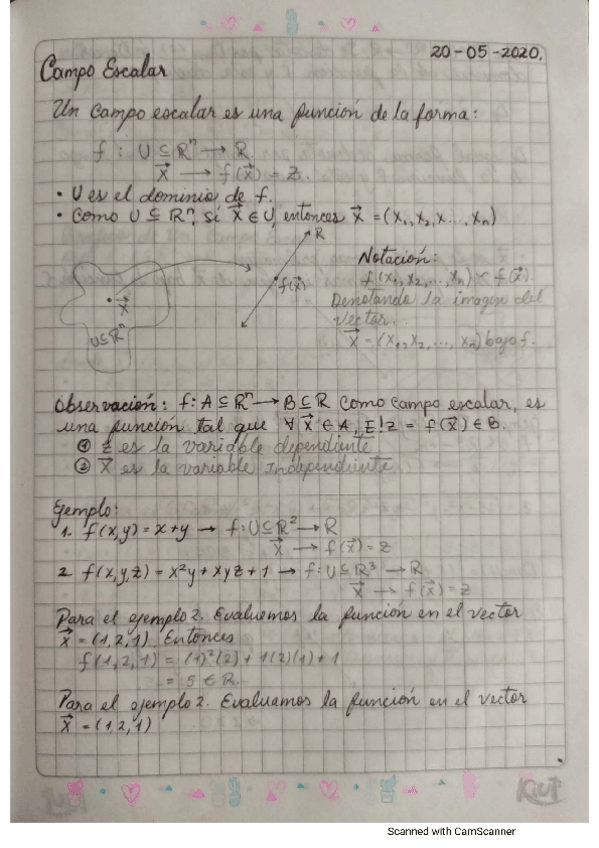 20-05-2020.
Campo Escalar
Un campo escalar es una función de la forma:
f : U ⊆ ℝⁿ → ℝ.
x⃗ → f(x⃗) = z.
• U es el dominio de f.
• Como U ⊆ ℝⁿ, si x⃗ ∈ U, entonces x⃗ = (x₁, x₂, x..., xₙ)
R
f(x⃗)
x⃗
U⊆ℝⁿ
Notación:
f(x₁, x₂, ..., xₙ) ~ f(x⃗).
Denotando la imagen del
vector.
x⃗ = (x₁, x₂, ..., xₙ) bajo f.
Observación: f: A ⊆ ℝⁿ → B ⊆ ℝ como campo escalar, es
una función tal que ∀ x⃗ ∈ A, ∃! z = f(x⃗) ∈ B.
① z es la variable dependiente
② x⃗ es la variable independiente
Ejemplo:
1. f(x,y) = x+y → f: U ⊆ ℝ² → ℝ
x⃗ → f(x⃗) = z
2. f(x,y,z) = x²y + xyz + 1 → f: U ⊆ ℝ³ → ℝ
x⃗ → f(x⃗) = z
Para el ejemplo 2. Evaluemos la función en el vector
x⃗ = (1,2,1). Entonces
f(1,2,1) = (1)²(2) + 1(2)(1) + 1
= 5 ∈ ℝ.
Para el ejemplo 2. Evaluamos la función en el vector
x⃗ = (1,2,1)
Kiut
Kiut
Scanned with CamScanner